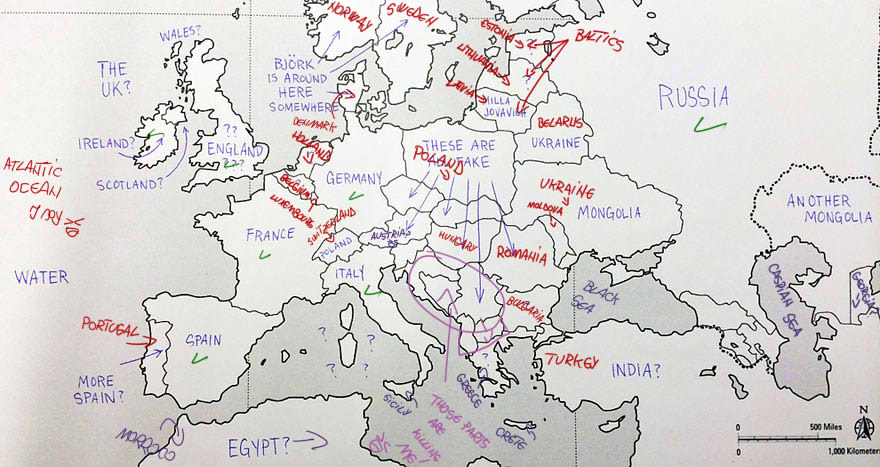 WALES?
THE
UK?
IRELAND?
SCOTLAND?
??
ENGLAND
???
ATLANTIC
OCEAN
WATER
NORWAY
SWEDEN
BJÖRK
IS AROUND
HERE
SOMEWHERE
DENMARK
HOLLAND
BELGIUM
LUXEMBOURG
SWITZERLAND
GERMANY
FRANCE
POLAND
AUSTRIA
ITALY
ESTONIA
?
LITHUANIA
LATVIA
BALTICS
MILLA
JOVAVICH
BELARUS
UKRAINE
RUSSIA
THESE ARE
POLAND
FAKE
UKRAINE
MOLDOVA
MONGOLIA
ANOTHER
MONGOLIA
HUNGARY
ROMANIA
BULGARIA
BLACK
SEA
CASPIAN SEA
GEORGIA
PORTUGAL
SPAIN
MORE
SPAIN?
?
?
?
?
?
TURKEY
INDIA?
GREECE
CRETE
SICILY
THOSE PARTS
ARE
KILLING
ME!
MOROCCO
EGYPT?
N
0
500 Miles
0
1,000 Kilometers